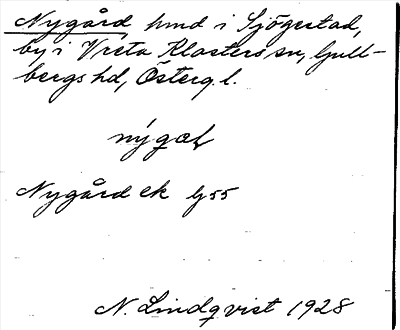 Nygård hmd i Sjögestad,
by i Vreta Klosters sn, Gull-
bergs hd, Österg. l.
Nygård ek G 55
N. Lindqvist 1928